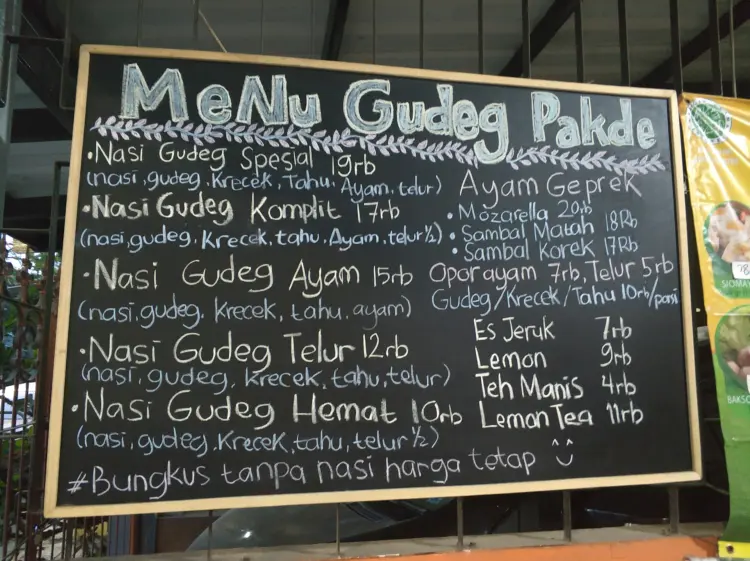 MeNu Gudeg Pakde
• Nasi Gudeg Spesial 19rb
(nasi, gudeg. Krecek, Tahu. Ayam, telur)
• Nasi Gudeg Komplit 17rb
(nasi, gudeg. Krecek, tahu. Ayam, telur ½)
• Nasi Gudeg Ayam 15rb
(nasi, gudeg. Krecek, tahu. ayam)
• Nasi Gudeg Telur 12rb
(nasi, gudeg. Krecek, tahu, telur)
• Nasi Gudeg Hemat 10rb
(nasi, gudeg. Krecek, tahu, telur ½)
Ayam Geprek
• Mozarella 20rb
• Sambal Matah 18Rb
• Sambal Korek 17Rb
Opor ayam 7rb, Telur 5rb
Gudeg/Krecek/Tahu 10rb/porsi
Es Jeruk 7rb
Lemon 9rb
Teh Manis 4rb
Lemon Tea 11rb
#Bungkus tanpa nasi harga tetap
SIOMAY
BAKSO